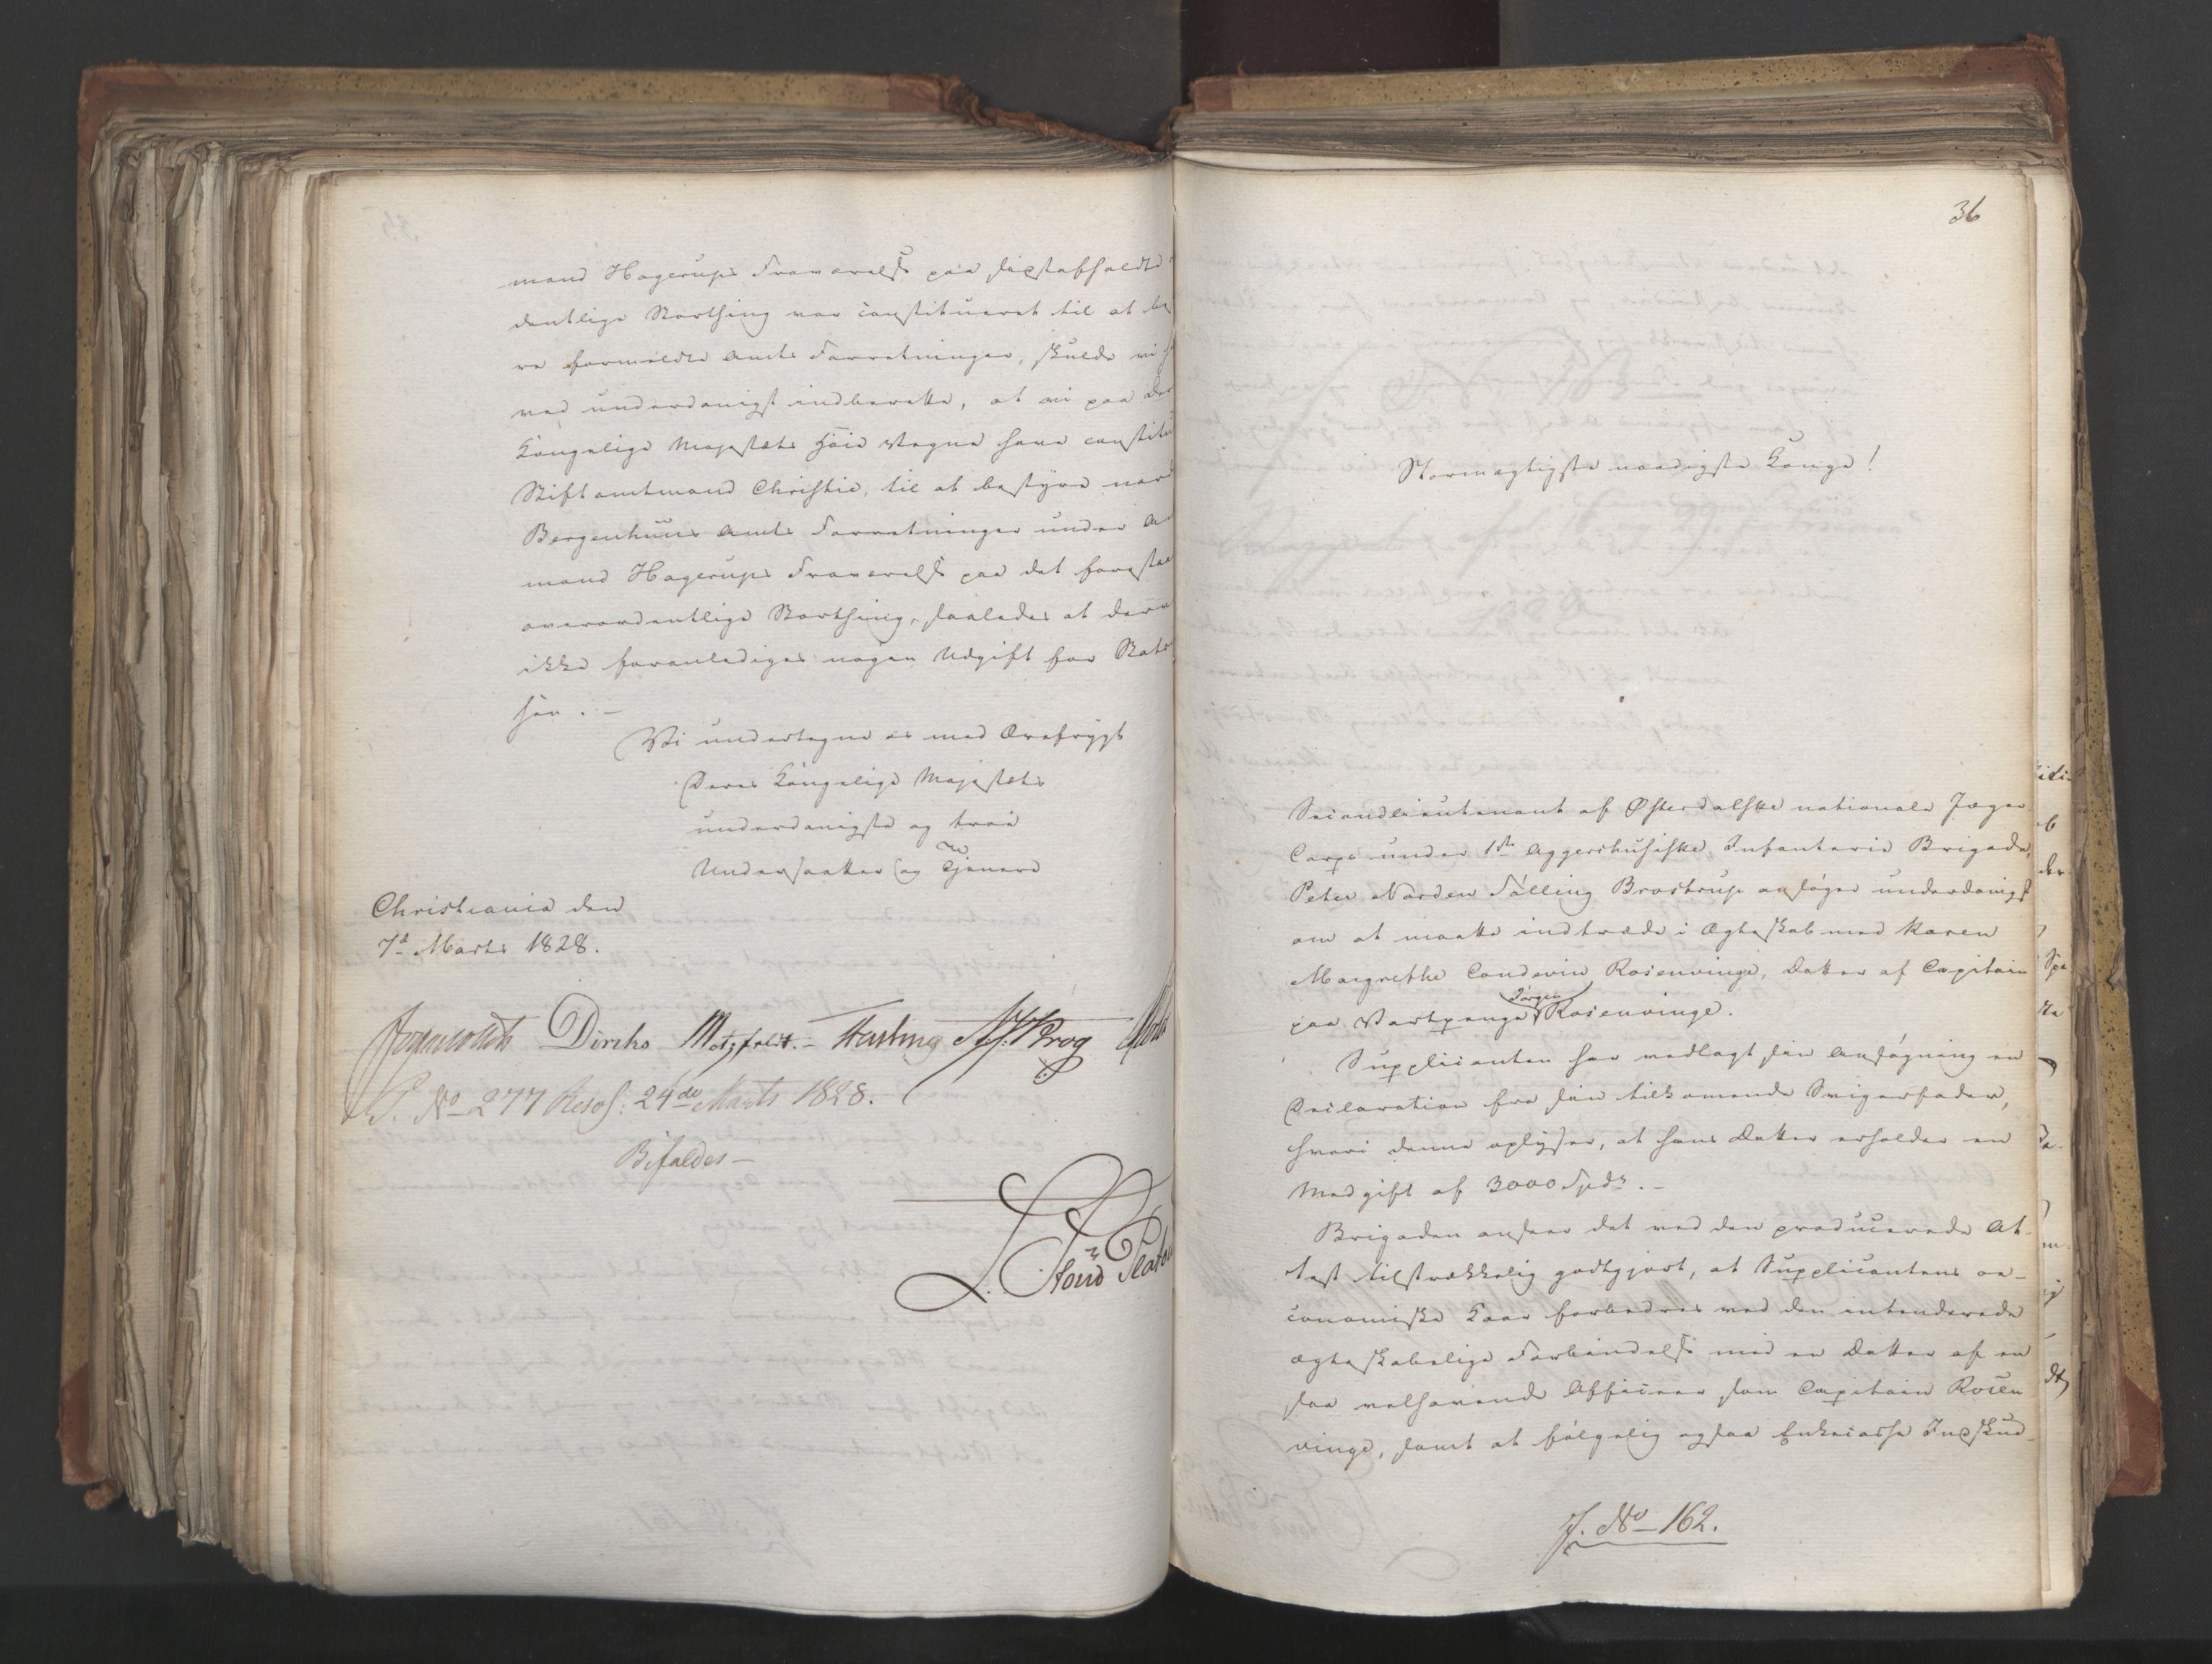 mand Hagerups Fraværelse paa sidstafholdte
dentlige Storthing var constitueret til at be
re formeldte Amts Forretninger, skulde vi h
ved underdanigst indberette, at vi paa Der
Kongelige Majestæts høie Vegne have constitu
Stiftamtmand Christie, til at bestyre nord
Bergenhuus Amts Forretninger under A
mand Hagerups Fraværelse paa det forestaa
overordentlige Storthing, saaledes at der
ikke foranlediges nogen Udgift for Stats
sen. –
Vi undertegne os med Ærefrygt
Deres Kongelige Majestæts
underdanigste og troe
Undersaatter og Tjenere
Christiania den
7d Marts 1828.
Diriks Motzfeldt. – Fasting Krog
P. No 277 Resol: 24de Marts 1828.
Bifaldes –
36
Stormægtigste naadigste Konge!
Secondlieutenant af Østerdalske nationale Jæger
Corps under 1ste Aggershusiske Infanterie Brigade,
Peter Norden Sølling Brostrup ansøger underdanigst
om at maatte indtræde i Ægteskab med Karen
Margrethe Condevin Rosenvinge, Datter af Capitain
paa Vartpenge Jørgen Rosenvinge.
Supplicanten har vedlagt sin Ansøgning en
Declaration fra sin tilkomende Svigerfader,
hvori denne oplyser, at hans Datter erholder en
Medgift af 3000 Spdr. –
Brigaden anseer det ved den producerede At-
test tilstrækkelig godtgjort, at Supplicantens oe-
conomiske Kaar forbedres ved den intenderede
ægteskabelige Forbindelse med en Datter af en
saa velhavende Officeer som Capitain Rosen
vinge, samt at følgelig ogsaa Enkecasse Indskud-
J. No 162.